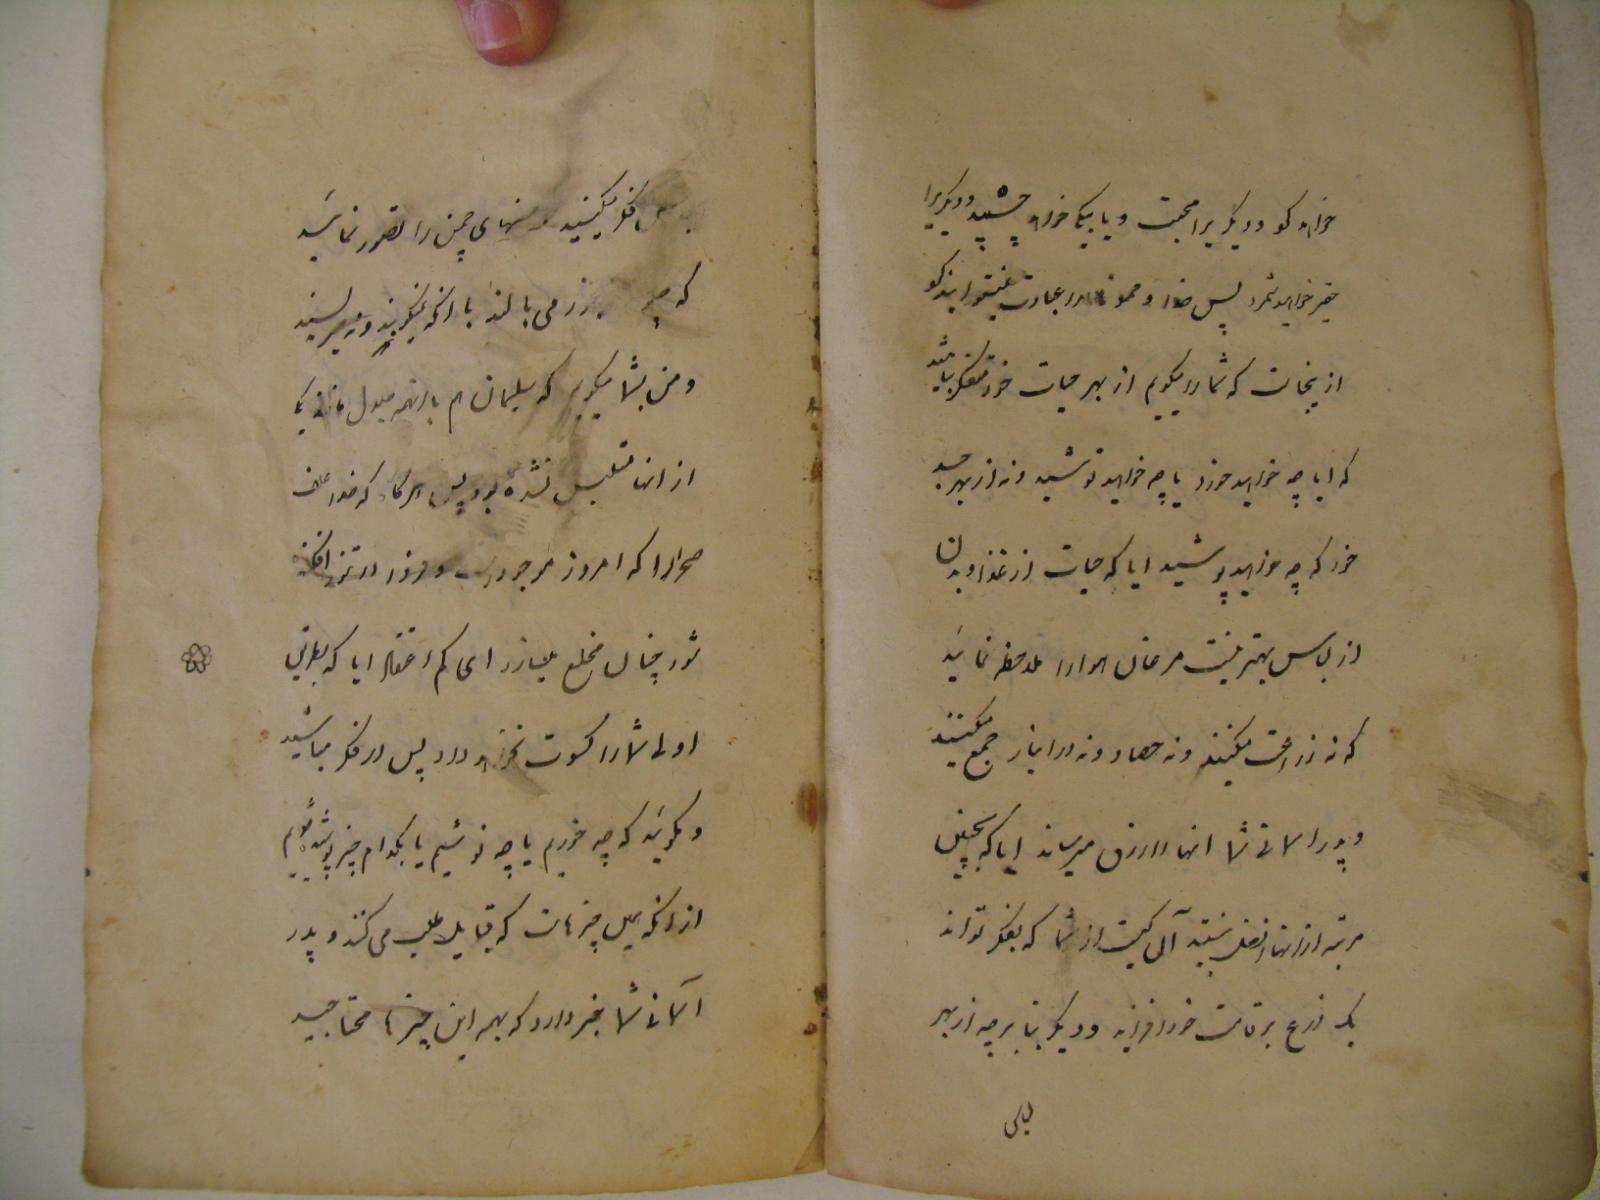 خواهد کرد و دیگریرا محبت و یا بیکی خواهد چسپید و دیگریرا
حقیر خواهد شمرد پس خدا و ممونا را عبادت نمیتوانید کرد
از ینجاست که شما را میگویم از بهر حیات خود متفکر مباشید
که ایا چه خواهید خورد یا چه خواهید نوشید و نه از بهر جسد
خود که چه خواهید پوشید ایا که حیات از غذا و بدن
از لباس بهتر نیست مرغان هوا را ملاحظه نمائید
که نه زراعت میکنند و نه حصاد و نه در انبار جمع میکنند
و پدر اسمانی شما انها را رزق میرساند ایا که بچندین
مرتبه از انها افضل نیستید آن کیست از شما که بفکر تواند
یک ذرع بر قامت خود افزاید و دیگر بنا بر چه از بهر
لباس
لباس فکر میکنید سوسنهای چمن را تصور نمائید
که چه می بالند با انکه نمیکوبند و نمیریسند
و من بشما میگویم که سلیمان هم با اینهمه جلال مانند یکی
از انها متلبس نشده بود پس هر گاه که خدا علف
صحرا را که امروز موجود است و فردا در تنور افکنده
شود چنان مخلع میسازد ای کم اعتقادان ایا که بطریق
اولی شما را کسوت نخواهد داد پس در فکر مباشید
و مگوئید که چه خوریم یا چه نوشیم یا بکدام چیز پوشیده شویم
از انکه همین چیزهاست که قبایل طلب می کنند و پدر
آسمانی شما خبر دارد که بهمه این چیزها محتاجید